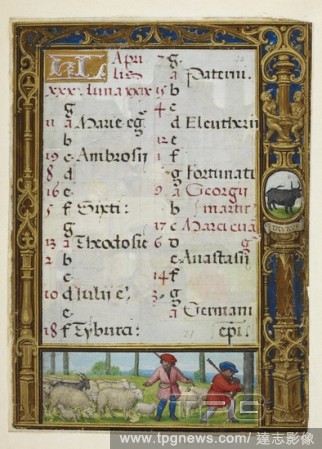 KL Apri
lis
xxx. luna xxix
g
11 a Marie eg̃
b
19 c Ambrosii
8 d
16 e
5 f Sixti:
g
13 a Theodosie
2 b
c
10 d Iulii c̃
e
18 f Tyburci:
7 g
a Paterni.
15 b
4 c
d Eleutherii
12 e
1 f
g Fortunati
9 a Georgii
b martir
17 c Marci euã
6 d g
e Anastasii
14 f
3 g
a Germani
ep̃i.
TPG
www.tpgnews.com/ 達志影像